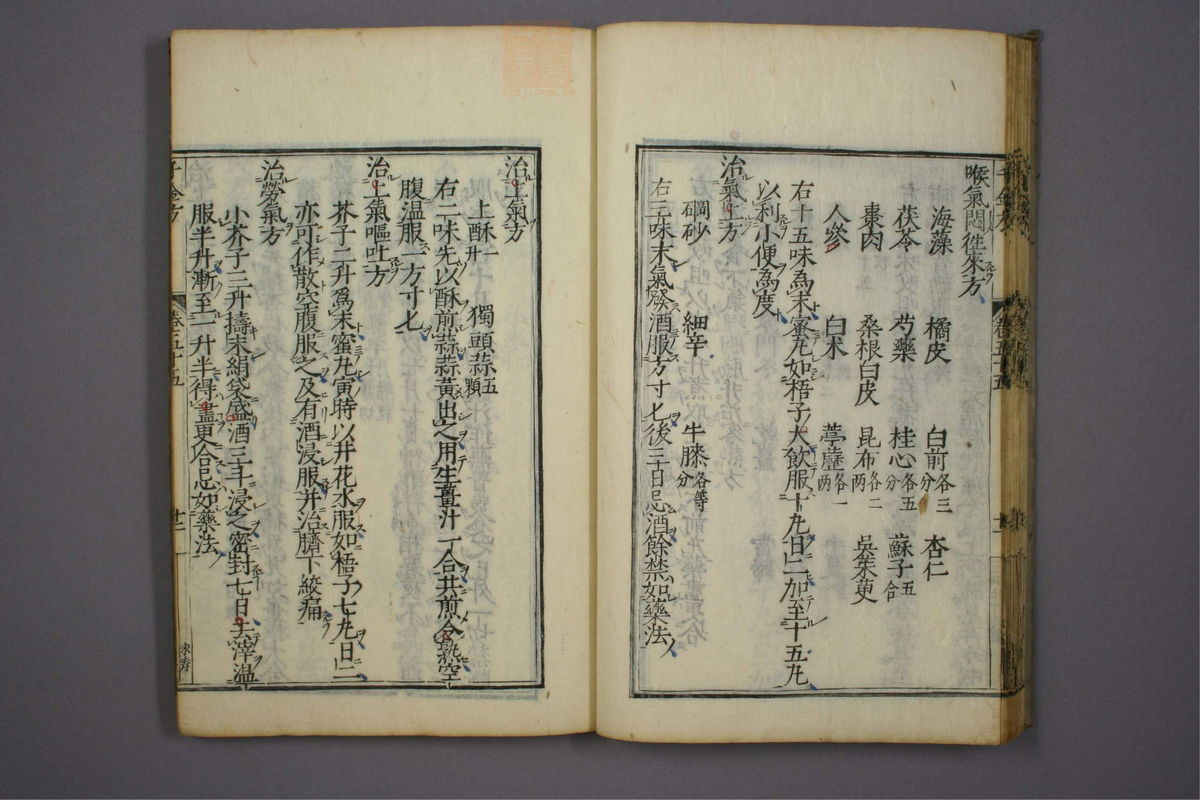 喉氣悶徃來方
海藻 橘皮 白前各三分 杏仁
茯苓 芍藥 桂心各五分 蘇子五合
棗肉 桑根白皮 昆布各二两 吳茱萸
人參 白术 葶藶各一两
右十五味為末蜜丸如梧子大飲服十丸日二加至十五丸
以利小便為度
治氣上方
硇砂 細辛 牛膝各等分
右三味末氣發酒服方寸匕後三十日忌酒餘禁如藥法
治上氣方
上酥一升 獨頭蒜五顆
右二味先以酥煎蒜蒜黃出之用生薑汁一合共煎令熟空
腹温服一方寸匕
治上氣嘔吐方
芥子二升為末蜜丸寅時以井花水服如梧子七丸日二
亦可作散空腹服之及有酒浸服并治臍下絞痛
治勞氣方
小芥子三升擣末絹袋盛酒三斗浸之密封七日去滓温
服半升漸至一升半得盡更合忌如藥法
千金方
卷五十五
廿二